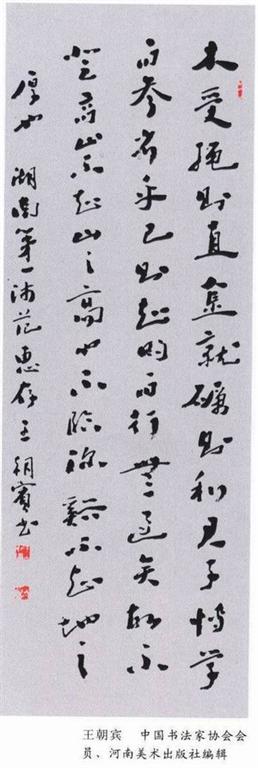 木受绳则直金就砺则利君子博学
而参省乎己则知明而行無过矣故不
登高山不知山之高也不临深谿不知地之
厚也 湖南第一师范惠存王朝宾书
王朝宾 中国书法家协会会
员、河南美术出版社编辑